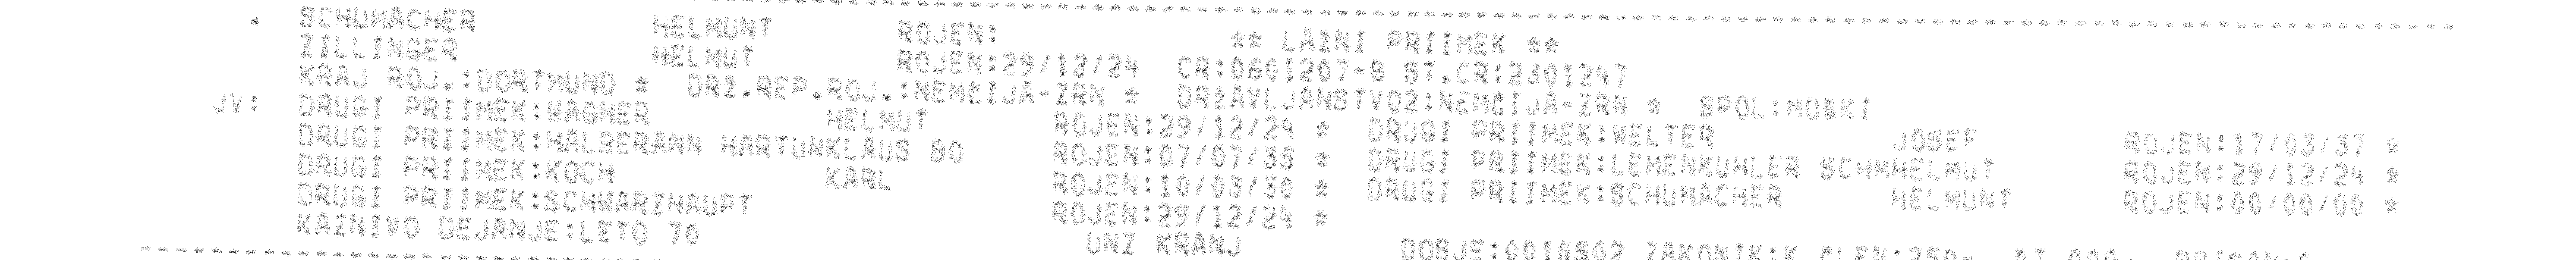 * SCHUMACHER HELMUNT ROJEN: ** LAZNI PRIIMEK **
ZILLINGER HELMUT ROJEN:29/12/24 CR:0601207-9 ST.CR:2301247
KRAJ ROJ.:DORTMUND * DRZ.REP.ROJ.:NEMCIJA-ZRN * DRZAVLJANSTVO2:NEMCIJA-ZRN * SPOL:MOSKI
JV: DRUGI PRIIMEK:WAGNER HELMUT ROJEN:29/12/24 * DRUGI PRIIMEK:WELTER JOSEF ROJEN:17/03/37 *
DRUGI PRIIMEK:HALBERANN HARTUNKLAUS BO ROJEN:07/07/38 * DRUGI PRIIMEK:LEMENKUHLER SCHMHELMUT ROJEN:29/12/24 *
DRUGI PRIIMEK:KOCH KARL ROJEN:10/03/36 * DRUGI PRIIMEK:SCHUMACHER HELMUNT ROJEN:00/00/00 *
DRUGI PRIIMEK:SCHWARZHAUPT ROJEN:29/12/24 *
KAZNIVO DEJANJE:LETO 70 UNZ KRANJ DOSJE:0016502 ZAKONIK:K CLEN:250